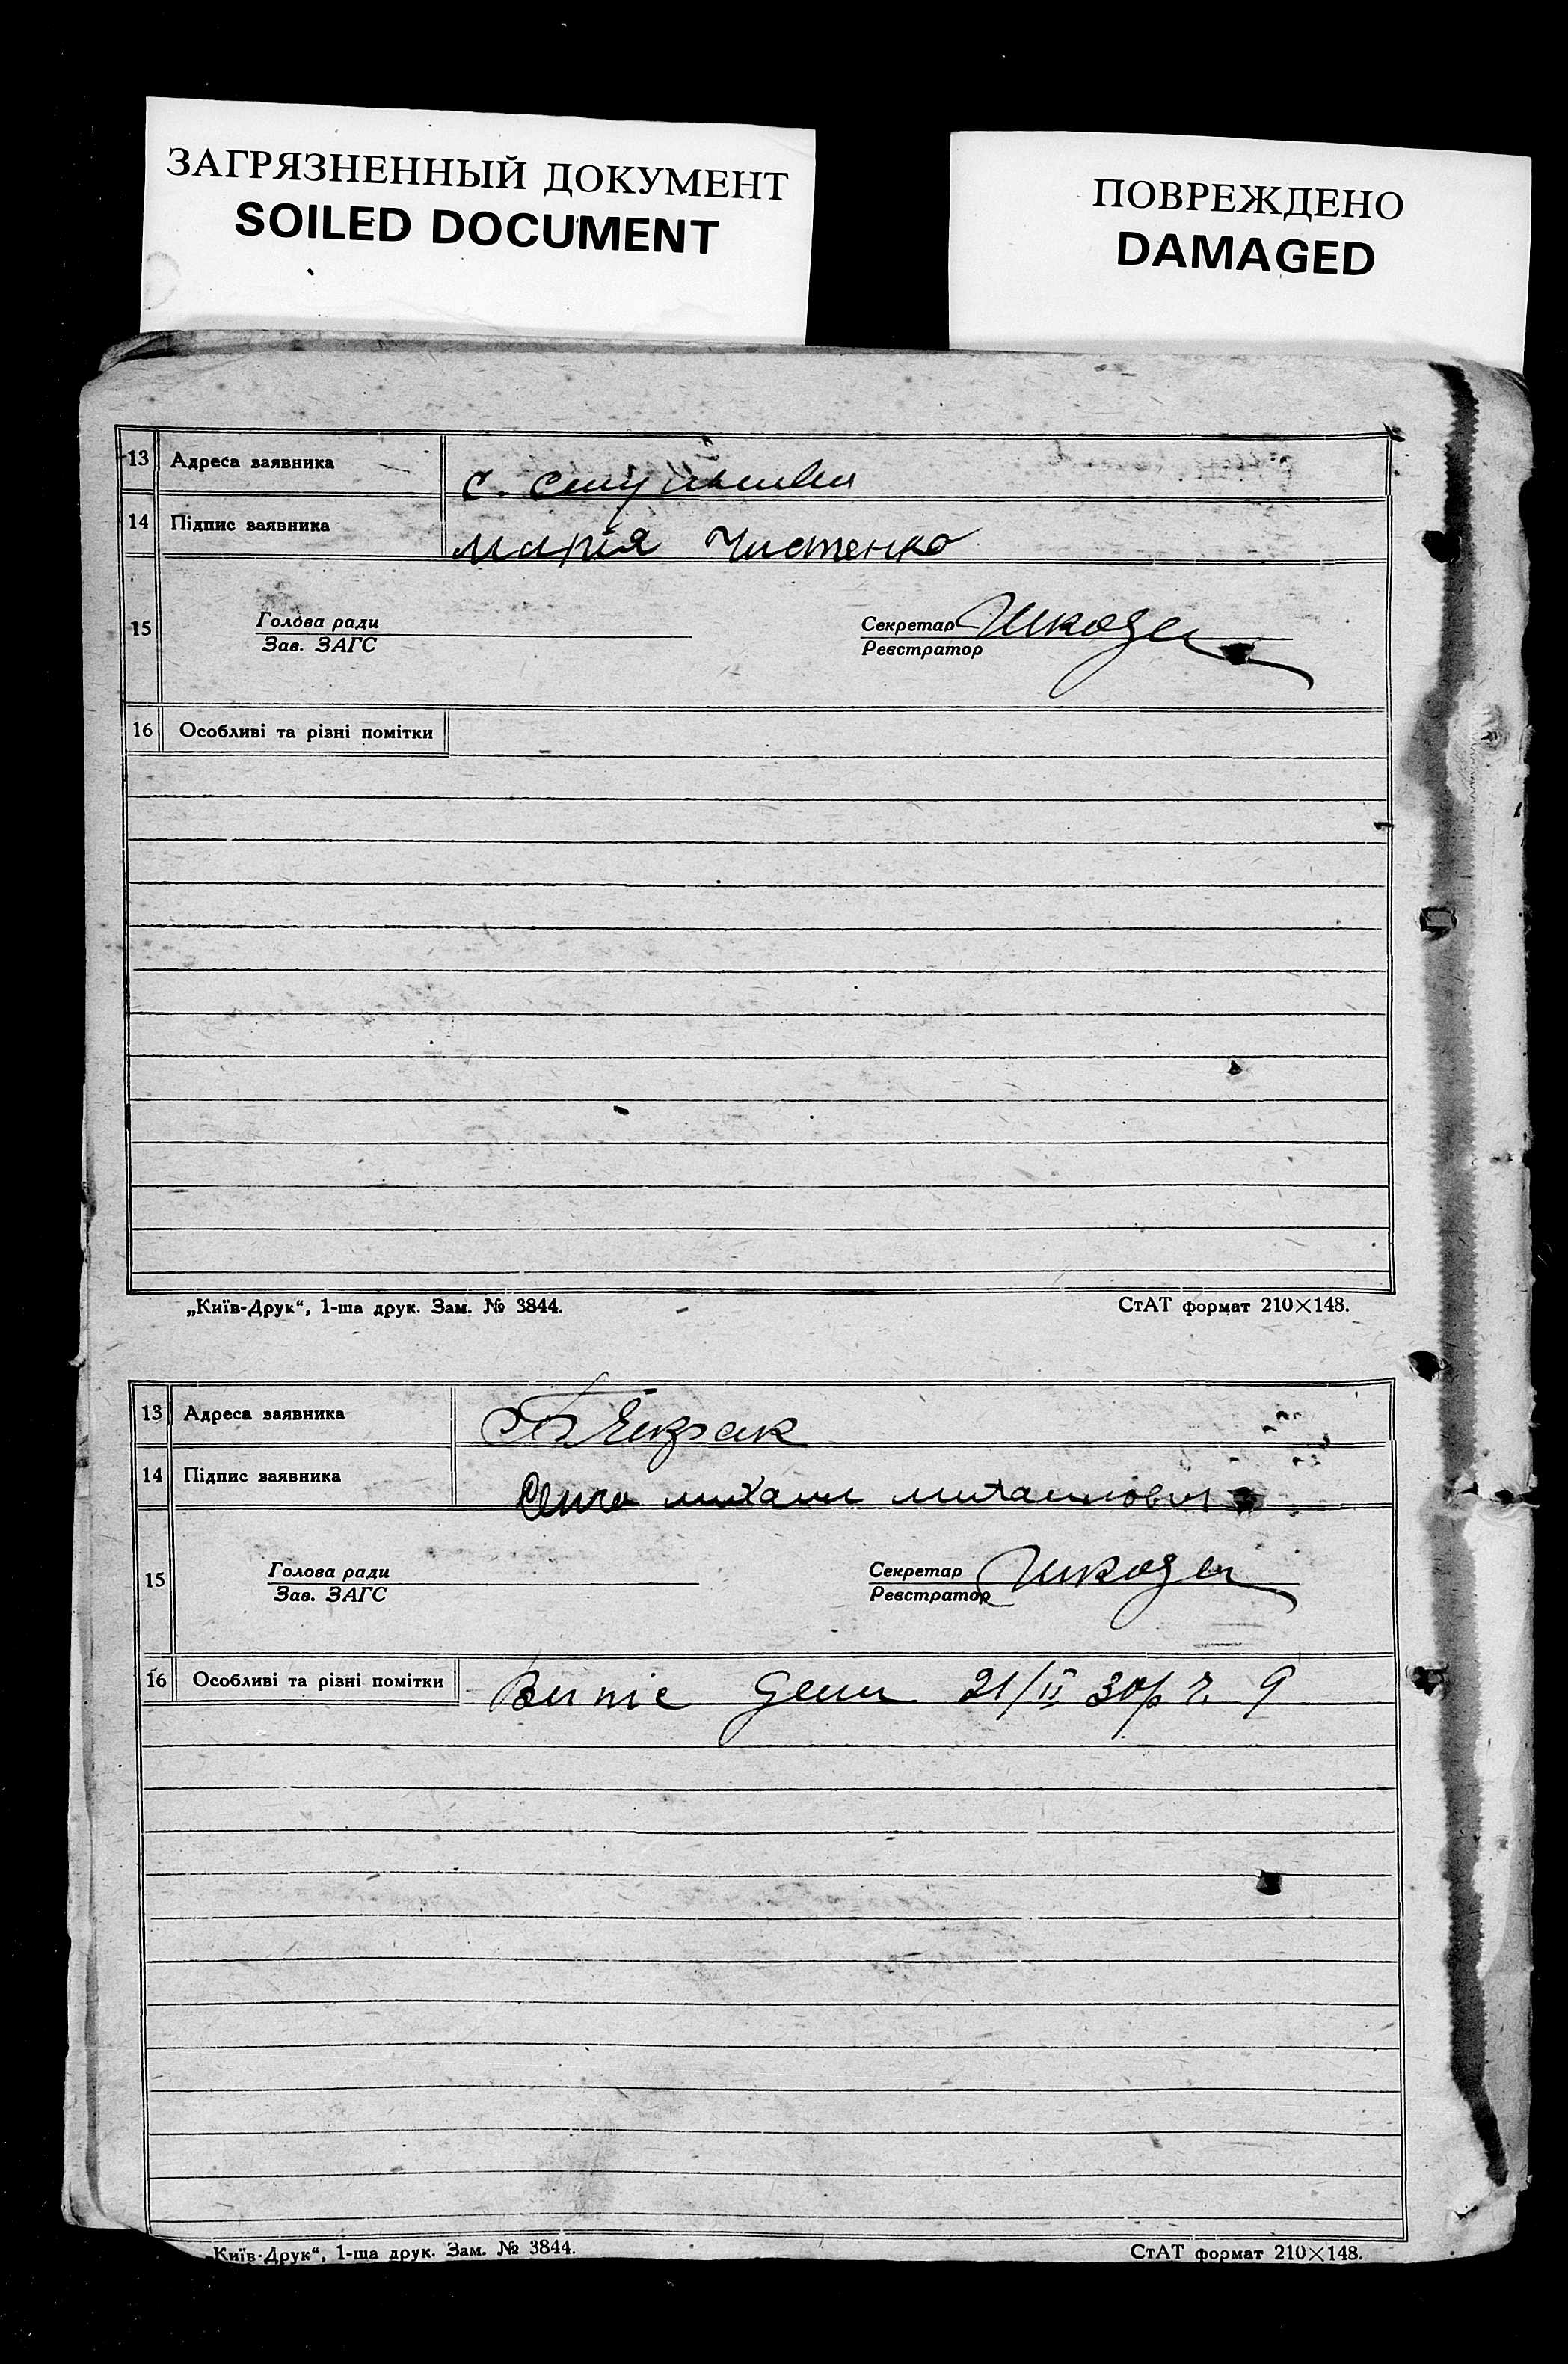 ЗАГРЯЗНЕННЫЙ ДОКУМЕНТ
SOILED DOCUMENT
ПОВРЕЖДЕНО
DAMAGED
13 Адреса заявника с.
14 Підпис заявника Марія Чистенко
15 Голова ради Секретар Шкода
Зав. ЗАГС Реєстратор
16 Особливі та різні помітки
„Київ-Друк“, 1-ша друк. Зам. № 3844. СтАТ формат 210×148.
13 Адреса заявника
14 Підпис заявника михаил михаилович
15 Голова ради Секретар Шкода
Зав. ЗАГС Реєстратор
16 Особливі та різні помітки 21/II 30р
„Київ-Друк“, 1-ша друк. Зам. № 3844. СтАТ формат 210×148.